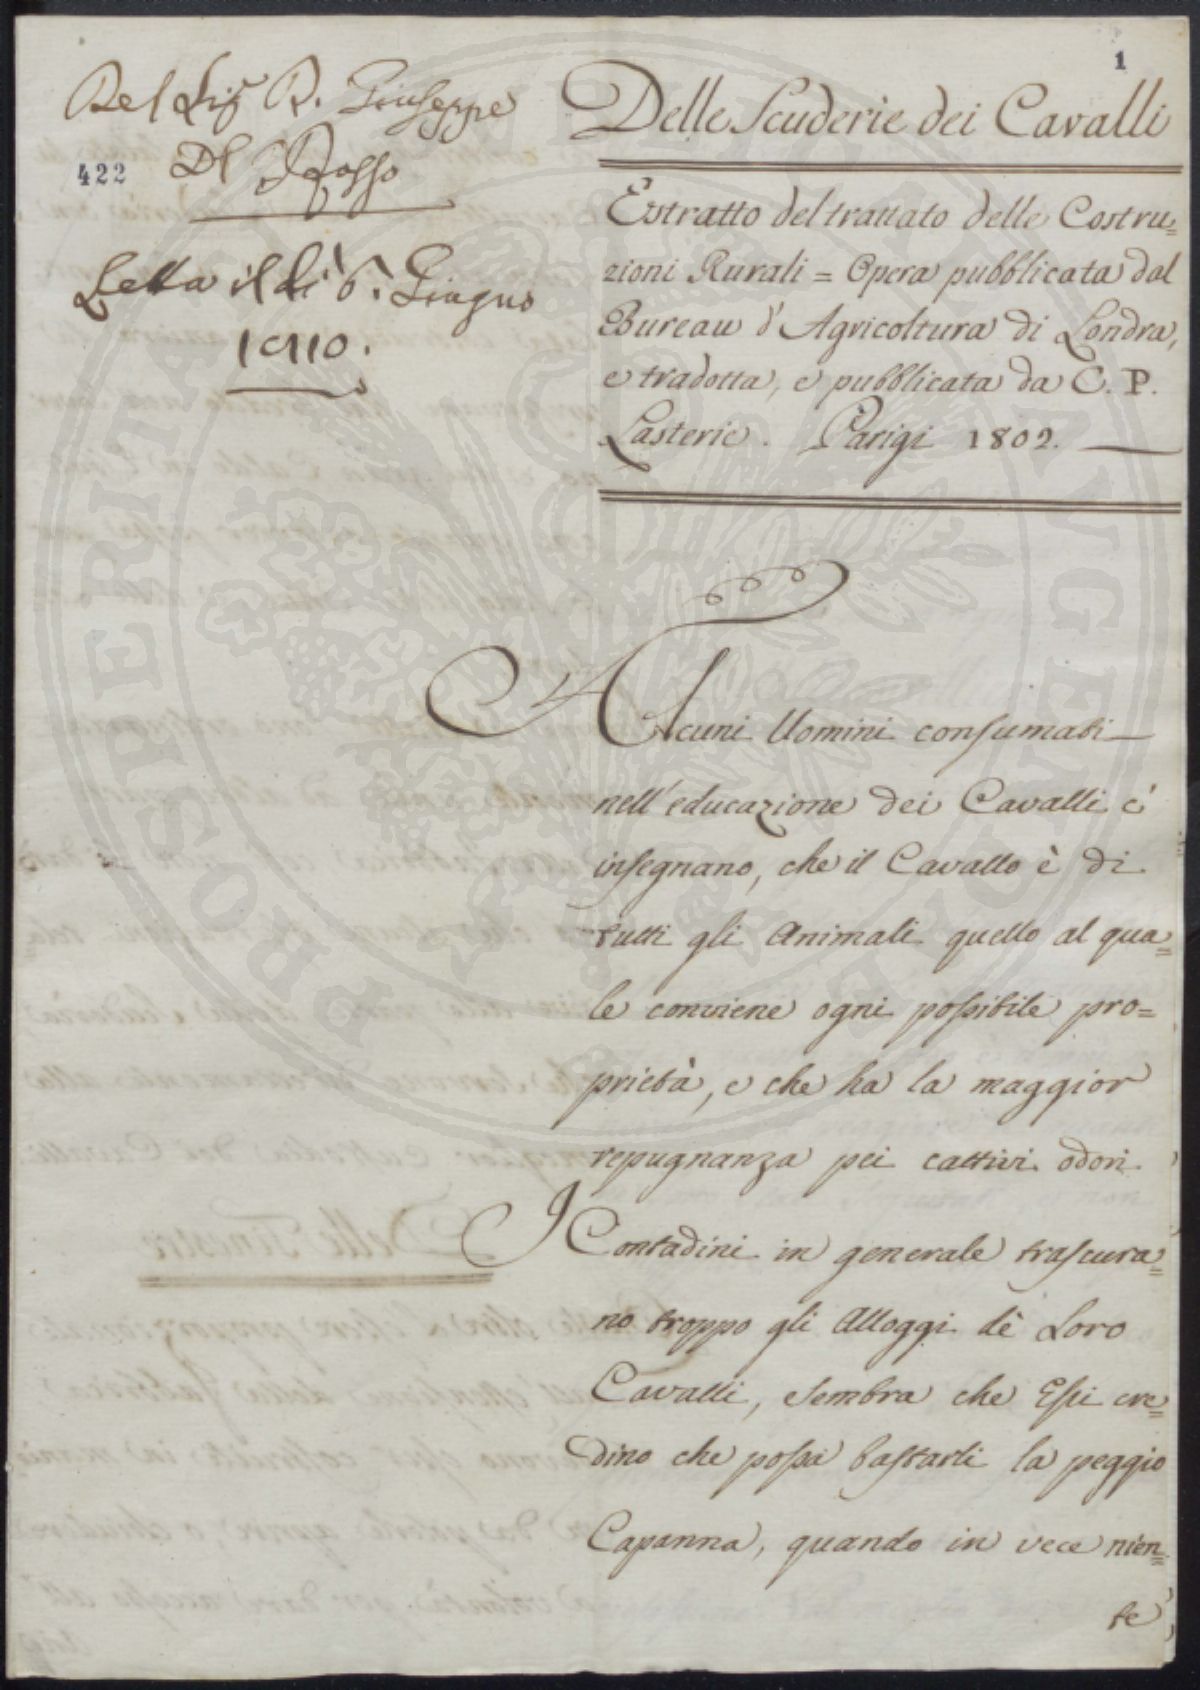 1
Del Sig.r D. Giuseppe
Del Rosso
422
Letta il dì 6. Giugno
1810.
Delle Scuderie dei Cavalli
Estratto del trattato delle Costru=
zioni Rurali = Opera pubblicata dal
Bureau d'Agricoltura di Londra,
e tradotta, e pubblicata da C. P.
Lasterie. Parigi 1802.
Alcuni Uomini consumati
nell'educazione dei Cavalli c'
insegnano, che il Cavallo è di
tutti gli Animali quello al qua=
le conviene ogni possibile pro=
prietà, e che ha la maggior
repugnanza pei cattivi odori
I Contadini in generale trascura=
no troppo gli Alloggi dè Loro
Cavalli, sembra che Essi cre=
dino che possa bastarli la peggio
Capanna, quando in vece nien=
te
PROSPERITATI AVGENDAE